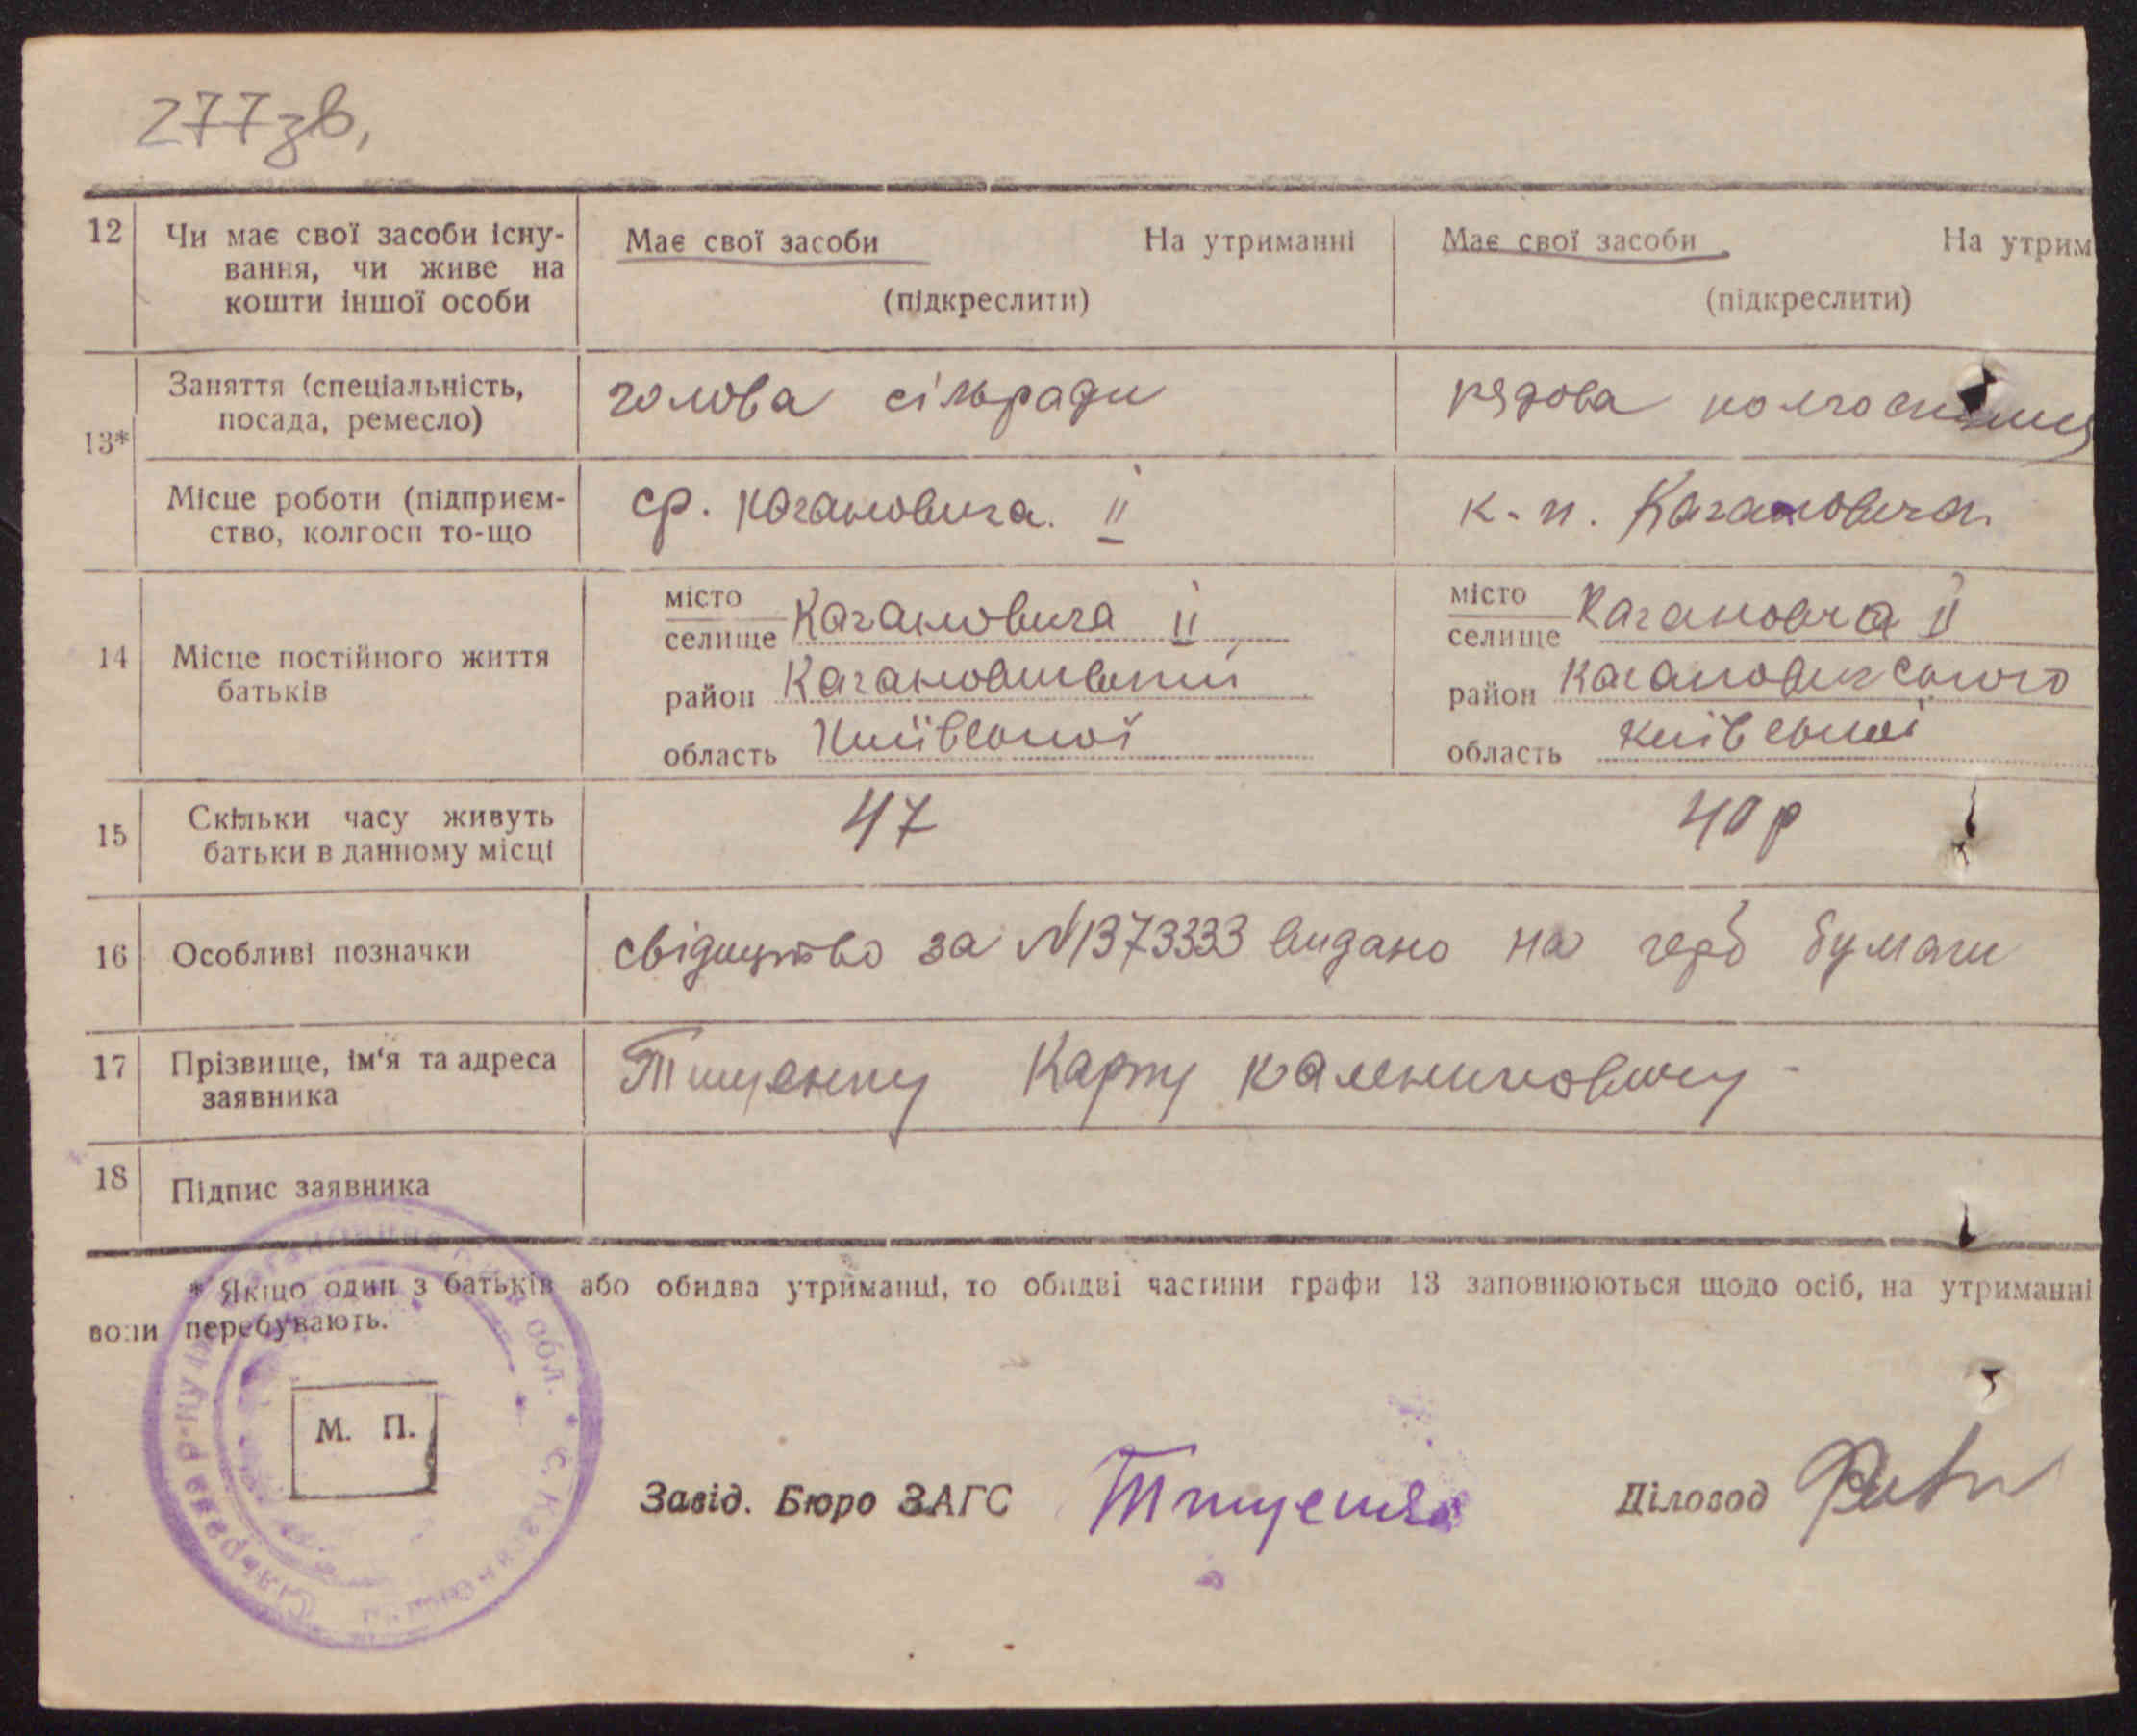 277зв,
12 Чи має свої засоби існу- Має свої засоби На утриманні Має свої засоби На утрим
вання, чи живе на
кошти іншої особи (підкреслити) (підкреслити)
Заняття (спеціальність, голова сільради рядова колгоспниця
посада, ремесло)
13*
Місце роботи (підприєм- ср. Кагановича. II к-п. Кагановича
ство, колгосп то-що
місто Кагановича II місто Кагановича II
селище селище
14 Місце постійного життя район Кагановицький район Кагановичского
батьків
область Київської область Київської
15 Скільки часу живуть 47 40 р
батьки в данному місці
16 Особливі позначки свідоцтво за N1373333 видано на герб бумаги
17 Прізвище, ім'я та адреса Тищенку Карпу Калениковичу -
заявника
18 Підпис заявника
* Якщо один з батьків або обидва утриманці, то обидві частини графи 13 заповнюються щодо осіб, на утриманні
вони перебувають.
М. П.
Завід. Бюро ЗАГС Тищенко Діловод
Сільрава р-ну обл. * с.